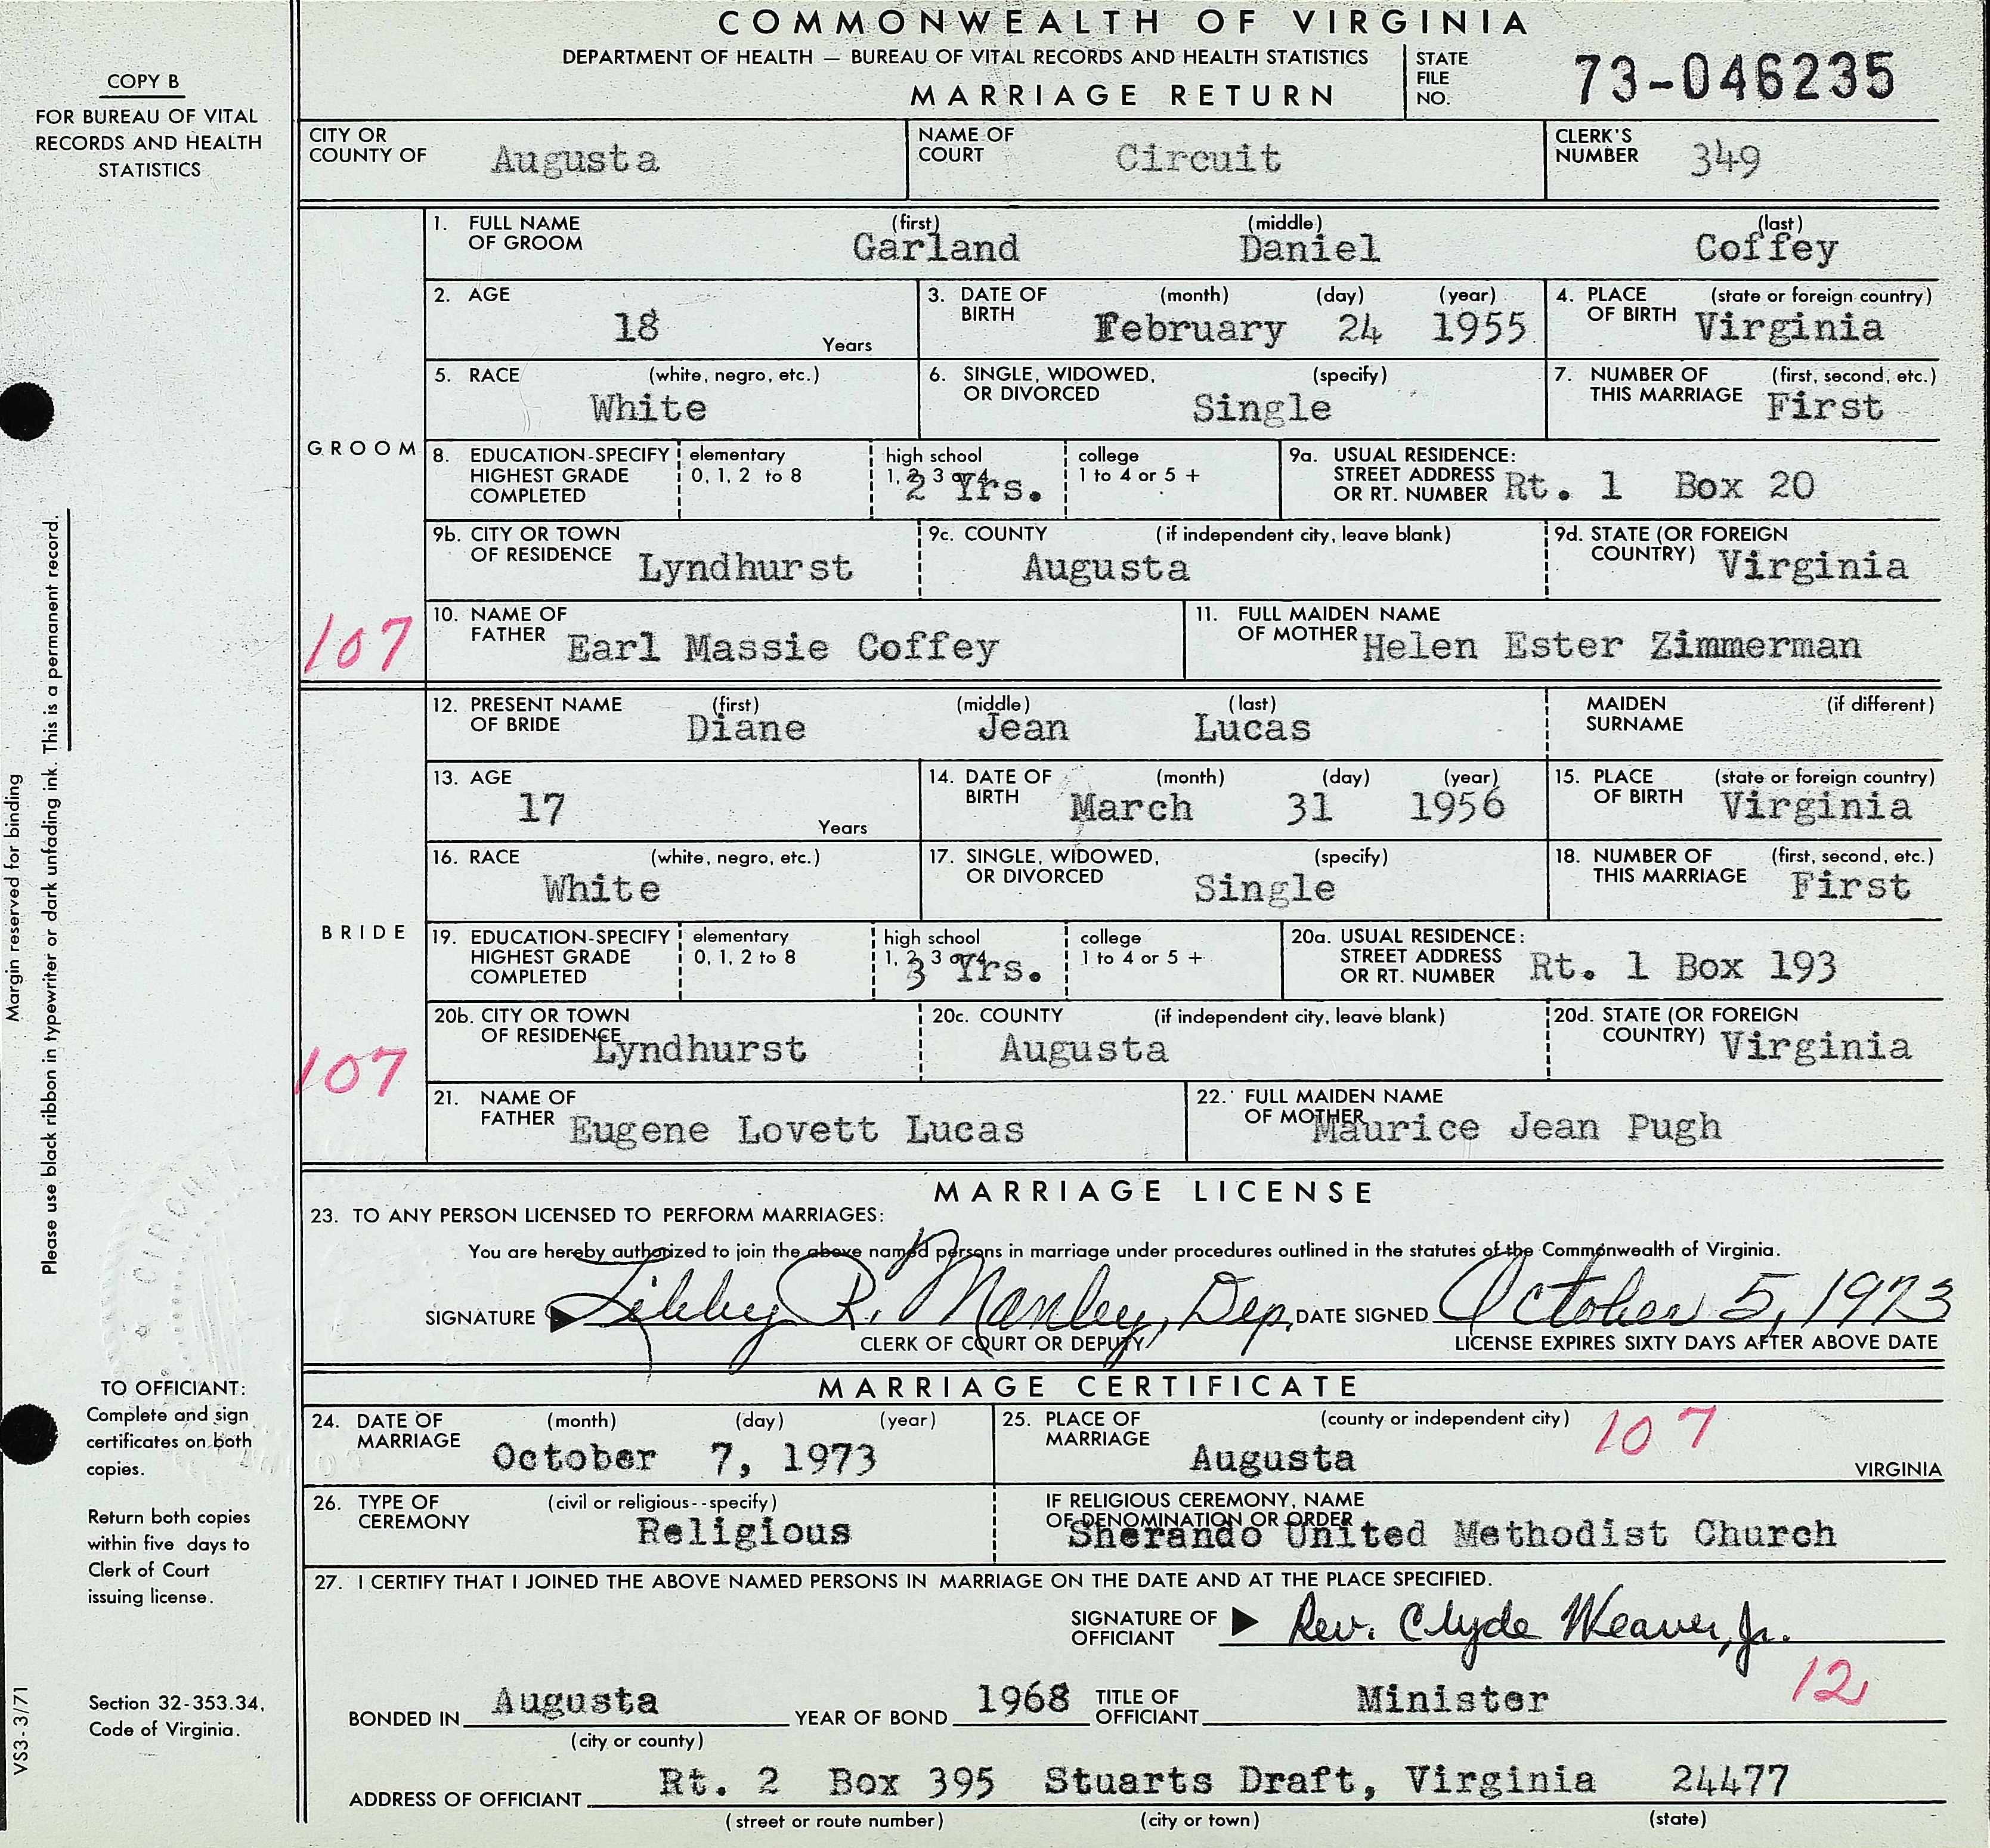 COMMONWEALTH OF VIRGINIA
DEPARTMENT OF HEALTH — BUREAU OF VITAL RECORDS AND HEALTH STATISTICS
MARRIAGE RETURN
STATE FILE NO. 73-046235
COPY B
FOR BUREAU OF VITAL
RECORDS AND HEALTH
STATISTICS
CITY OR COUNTY OF Augusta NAME OF COURT Circuit CLERK'S NUMBER 349
GROOM
1. FULL NAME OF GROOM (first) Garland (middle) Daniel (last) Coffey
2. AGE 18 Years 3. DATE OF BIRTH (month) (day) (year) February 24 1955 4. PLACE OF BIRTH (state or foreign country) Virginia
5. RACE (white, negro, etc.) White 6. SINGLE, WIDOWED, OR DIVORCED (specify) Single 7. NUMBER OF THIS MARRIAGE (first, second, etc.) First
8. EDUCATION-SPECIFY HIGHEST GRADE COMPLETED elementary 0, 1, 2 to 8 high school 1, 2, 3 or 4 2 Yrs. college 1 to 4 or 5 + 9a. USUAL RESIDENCE: STREET ADDRESS OR RT. NUMBER Rt. 1 Box 20
9b. CITY OR TOWN OF RESIDENCE Lyndhurst 9c. COUNTY (if independent city, leave blank) Augusta 9d. STATE (OR FOREIGN COUNTRY) Virginia
107
10. NAME OF FATHER Earl Massie Coffey 11. FULL MAIDEN NAME OF MOTHER Helen Ester Zimmerman
BRIDE
12. PRESENT NAME OF BRIDE (first) Diane (middle) Jean (last) Lucas MAIDEN SURNAME (if different)
13. AGE 17 Years 14. DATE OF BIRTH (month) (day) (year) March 31 1956 15. PLACE OF BIRTH (state or foreign country) Virginia
16. RACE (white, negro, etc.) White 17. SINGLE, WIDOWED, OR DIVORCED (specify) Single 18. NUMBER OF THIS MARRIAGE (first, second, etc.) First
19. EDUCATION-SPECIFY HIGHEST GRADE COMPLETED elementary 0, 1, 2 to 8 high school 1, 2, 3 or 4 3 Yrs. college 1 to 4 or 5 + 20a. USUAL RESIDENCE: STREET ADDRESS OR RT. NUMBER Rt. 1 Box 193
20b. CITY OR TOWN OF RESIDENCE Lyndhurst 20c. COUNTY (if independent city, leave blank) Augusta 20d. STATE (OR FOREIGN COUNTRY) Virginia
107
21. NAME OF FATHER Eugene Lovett Lucas 22. FULL MAIDEN NAME OF MOTHER Maurice Jean Pugh
MARRIAGE LICENSE
23. TO ANY PERSON LICENSED TO PERFORM MARRIAGES:
You are hereby authorized to join the above named persons in marriage under procedures outlined in the statutes of the Commonwealth of Virginia.
SIGNATURE Libby R. Manley, Dep. DATE SIGNED October 5, 1973
CLERK OF COURT OR DEPUTY LICENSE EXPIRES SIXTY DAYS AFTER ABOVE DATE
MARRIAGE CERTIFICATE
24. DATE OF MARRIAGE (month) (day) (year) October 7, 1973 25. PLACE OF MARRIAGE (county or independent city) Augusta 107 VIRGINIA
26. TYPE OF CEREMONY (civil or religious--specify) Religious IF RELIGIOUS CEREMONY, NAME OF DENOMINATION OR ORDER Sherando United Methodist Church
27. I CERTIFY THAT I JOINED THE ABOVE NAMED PERSONS IN MARRIAGE ON THE DATE AND AT THE PLACE SPECIFIED.
SIGNATURE OF OFFICIANT Rev. Clyde Weaver, Jr.
12
BONDED IN Augusta YEAR OF BOND 1968 TITLE OF OFFICIANT Minister
(city or county)
ADDRESS OF OFFICIANT Rt. 2 Box 395 Stuarts Draft, Virginia 24477
(street or route number) (city or town) (state)
Margin reserved for binding
Please use black ribbon in typewriter or dark unfading ink. This is a permanent record.
CIRCUIT
TO OFFICIANT:
Complete and sign
certificates on both
copies.
Return both copies
within five days to
Clerk of Court
issuing license.
Section 32-353.34,
Code of Virginia.
VS3-3/71